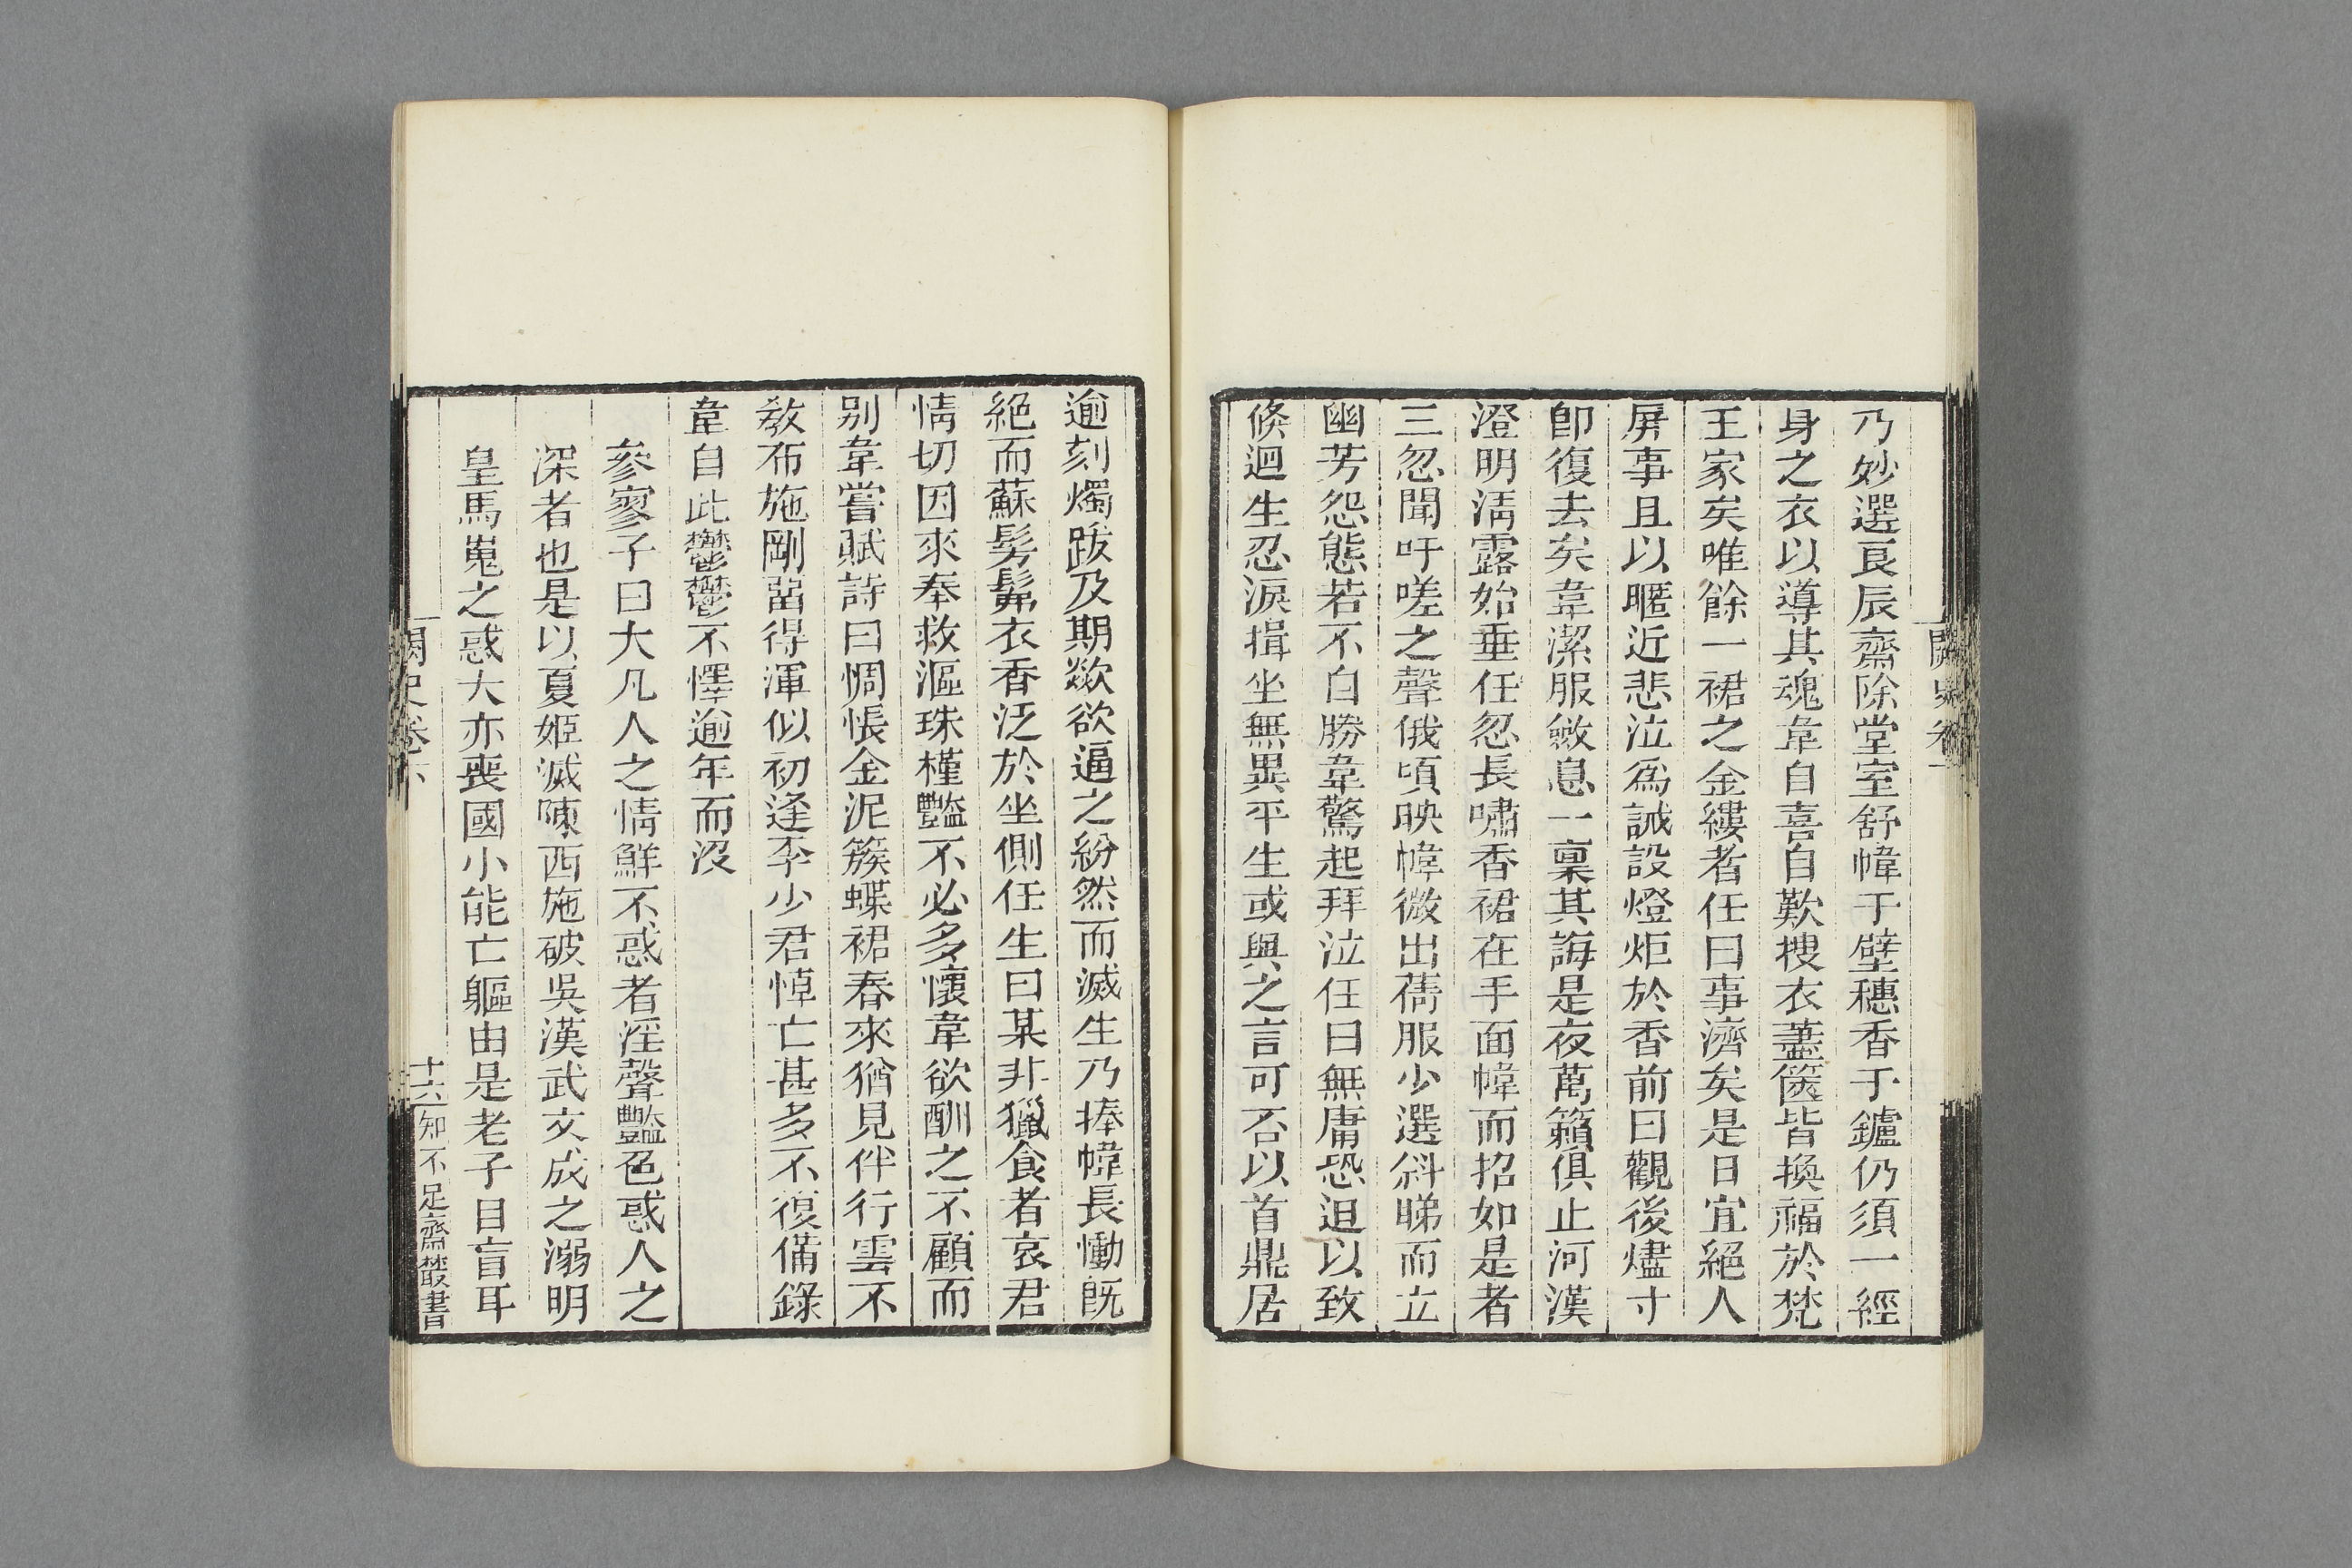 乃妙選良辰齋除堂室舒幃于壁穗香于鑪仍須一經
身之衣以導其魂韋自喜自歎搜衣藎篋皆換福於梵
王家矣唯餘一裙之金縷者任曰事濟矣是日宜絕人
屏事且以暱近悲泣爲誡設燈炬於香前曰觀後燼寸
卽復去矣韋潔服斂息一稟其誨是夜萬籟俱止河漢
澄明淸露始垂任忽長嘯香裙在手面幃而招如是者
三忽聞吁嗟之聲俄頃映幃微出蒨服少選斜睇而立
幽芳怨態若不自勝韋驚起拜泣任曰無庸恐迫以致
倏迴生忍淚揖坐無異平生或與之言可否以首鼎居
逾刻燭跋及期欻欲逼之紛然而滅生乃捧幃長慟旣
絕而蘇髣髴衣香泛於坐側任生曰某非獵食者哀君
情切因來奉救漚珠槿豔不必多懷韋欲酬之不顧而
别韋嘗賦詩曰惆悵金泥簇蝶裙春來猶見伴行雲不
敎布施剛留得渾似初逢李少君悼亡甚多不復備錄
韋自此鬱鬱不懌逾年而沒
參寥子曰大凡人之情鮮不惑者淫聲豔色惑人之
深者也是以夏姬滅陳西施破吳漢武文成之溺明
皇馬嵬之惑大亦喪國小能亡軀由是老子目盲耳
闕史卷下
十六
知不足齋叢書